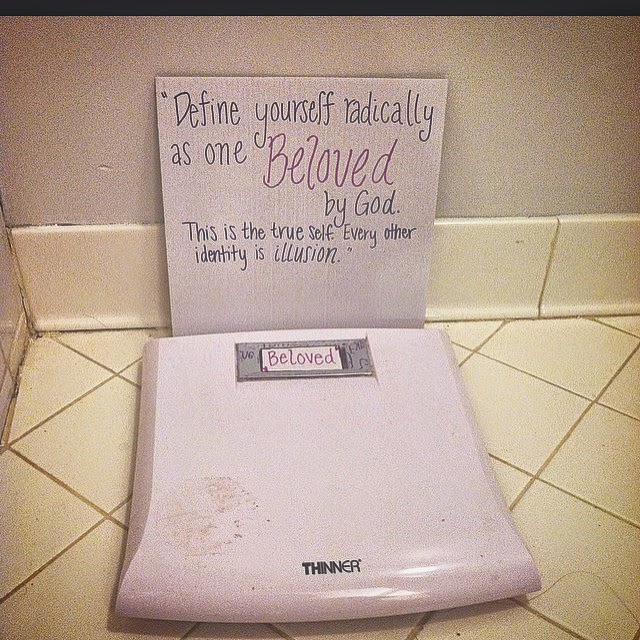 "Define yourself radically
as one Beloved
by God.
This is the true self. Every other
identity is illusion."
"Beloved"
THINNER